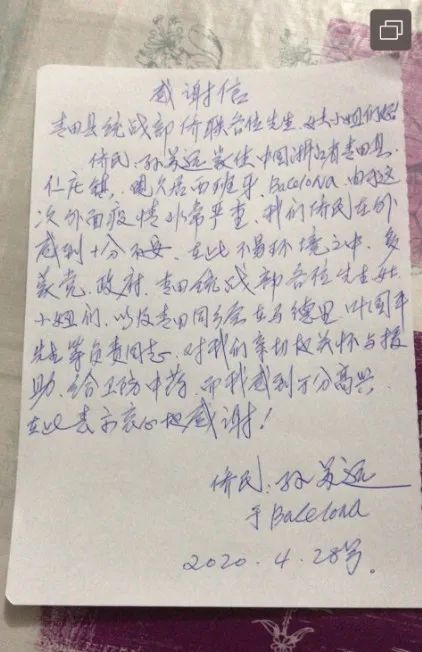 感谢信
青田县统战部侨联各位先生、女士小姐们好
侨民：孙苏远家住中国浙江省青田县、
仁庄镇、现久居西班牙、Bacelona、由于这
次外面疫情非常严重、我们侨民在外
感到十分不安、在此不易环境之中、多
蒙党、政府、青田统战部各位先生女士
小姐们、以及青田同乡会在马德里、叶国平
先生等负责同志、对我们亲切的关怀与援
助、给卫防中药、而我感到万分高兴、
在此表示衷心地感谢！
侨民：孙苏远
于Bacelona
2020.4.28号。